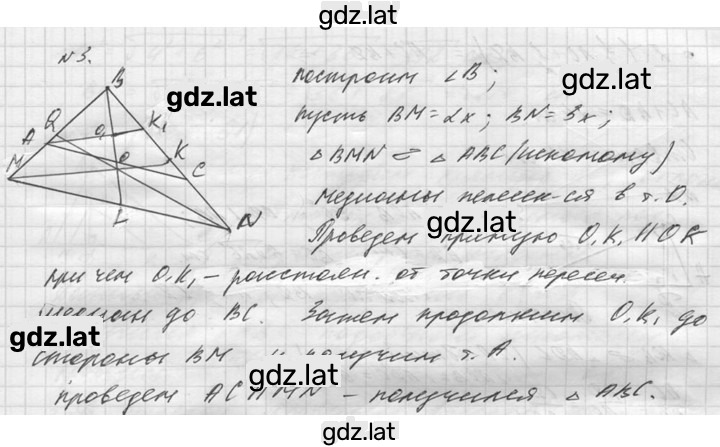 gdz.lat
№3.
построим ∠B;
gdz.lat
gdz.lat
пусть BM=2x; BN=3x;
△BMN ∽ △ABC (искомому)
медианы пересек-ся в т.О.
gdz.lat
Проведем прямую O₁K₁ || OK
причем O₁K₁ - расстоян. от точки пересеч.
медиан до BC. Затем продолжим O₁K₁ до
gdz.lat
стороны BM и получим т. A.
gdz.lat
проведем AC || MN - получился △ABC.
gdz.lat
B
Q
A
M
O₁
K₁
O
K
C
L
N